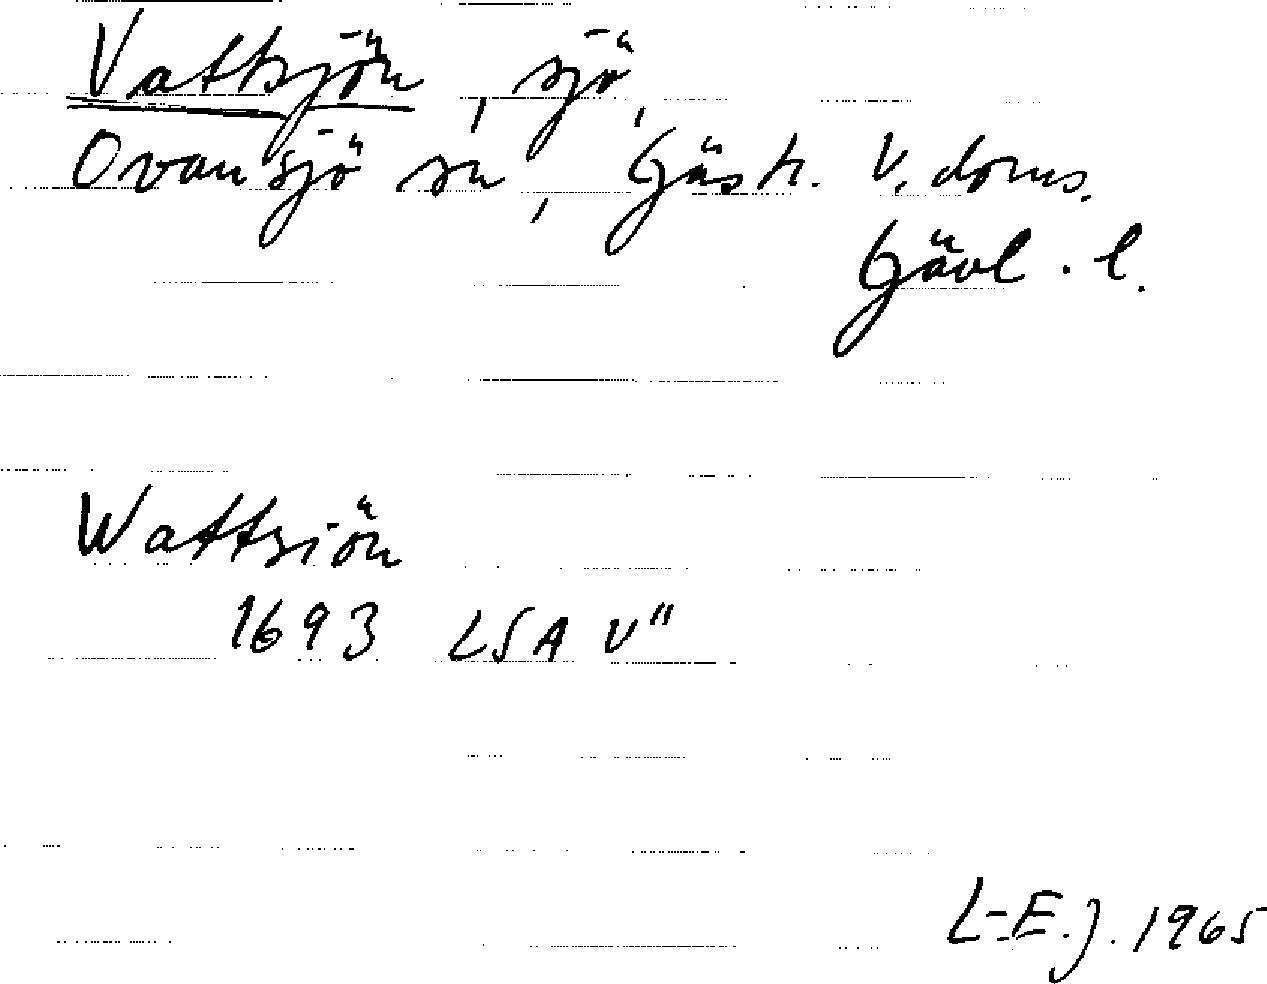 Vattsjön, sjö,
Ovansjö sn, Gästr. V. doms.
Gävl. l.
Wattsiön
1693 LSA V"
L-E.J. 1965